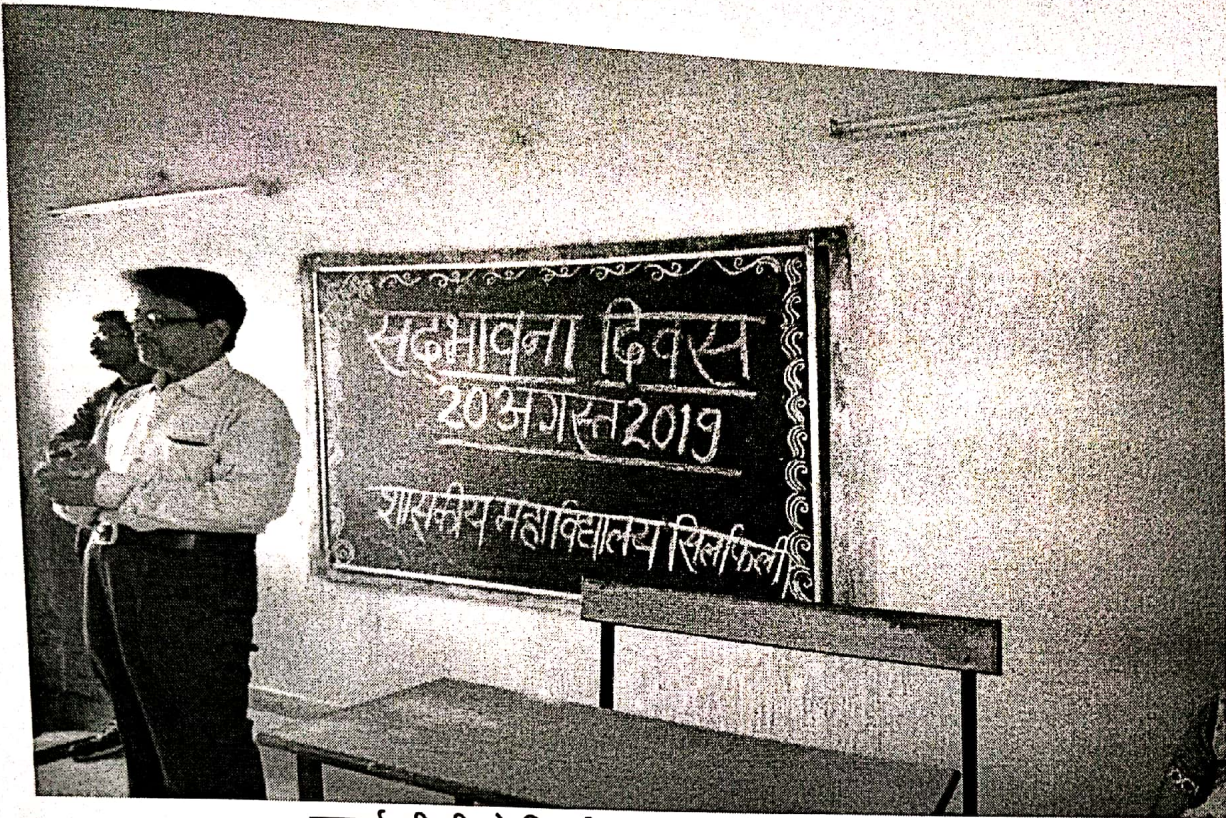 सद्भावना दिवस
20 अगस्त 2019
शासकीय महाविद्यालय सिलफिली